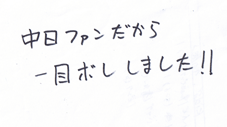 中日ファンだから
一目ボレしました!!